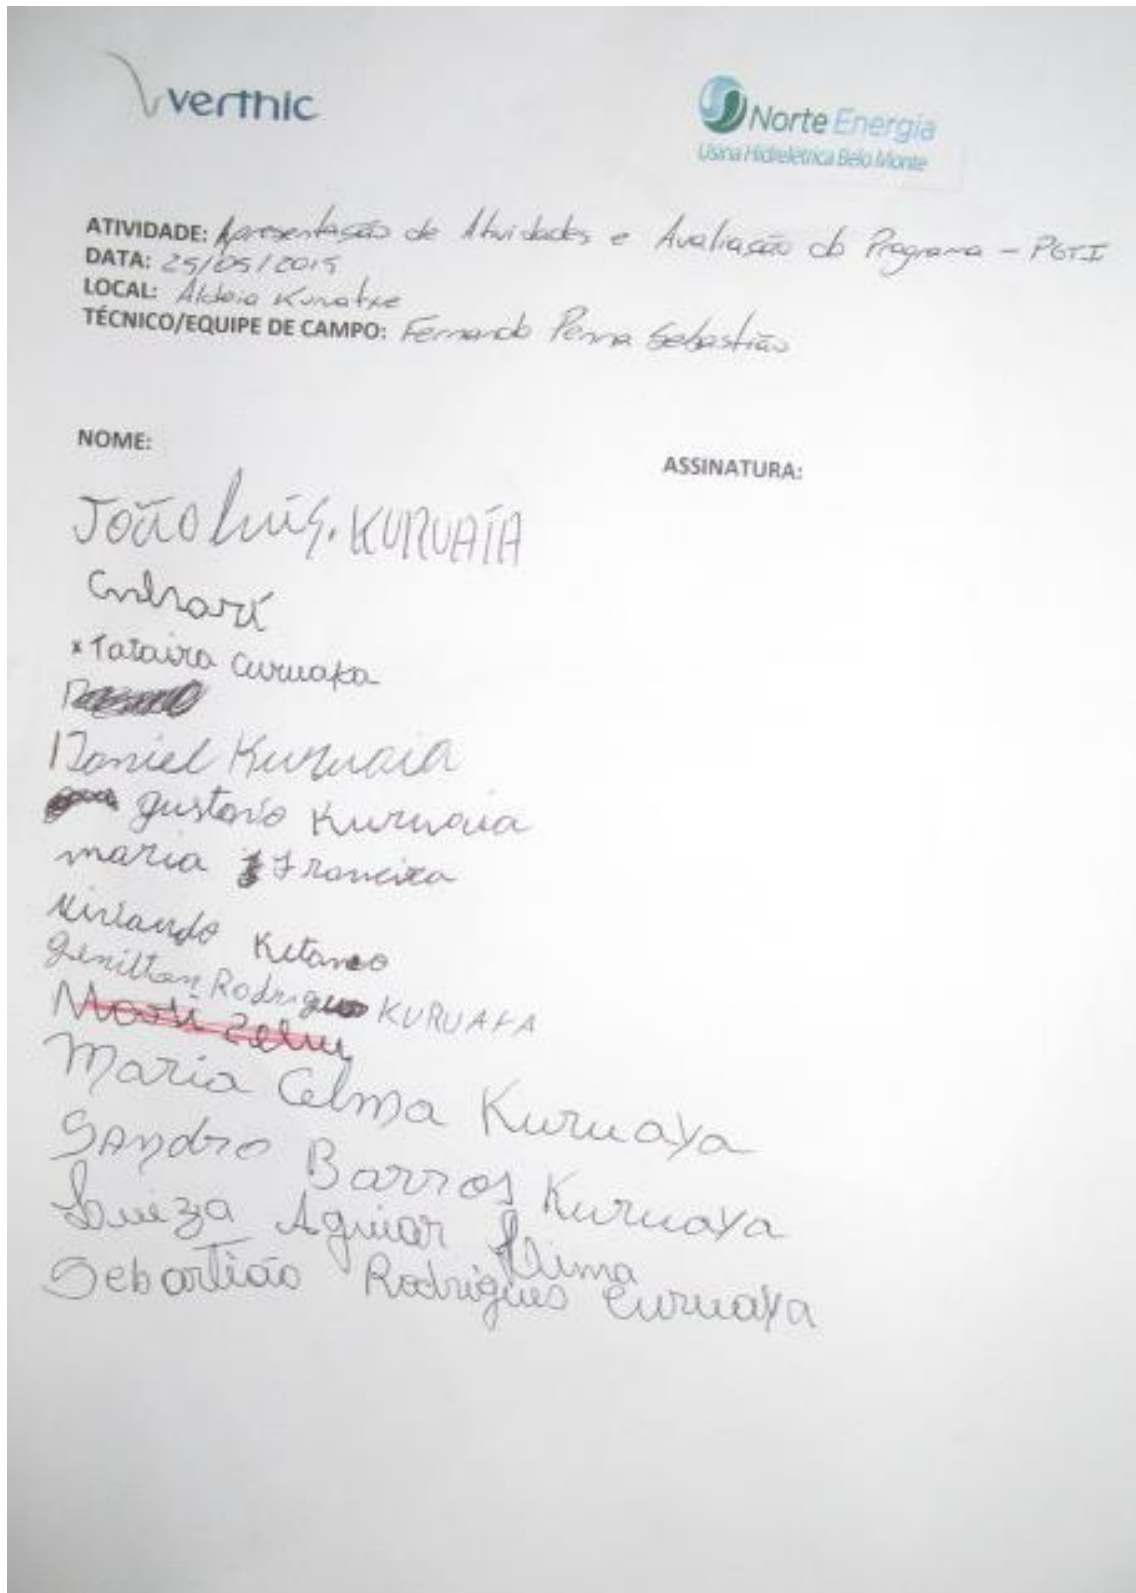 verthic
Norte Energia
Usina Hidrelétrica Belo Monte
ATIVIDADE: Apresentação de Atividades e Avaliação do Programa - PGTI
DATA: 25/05/2015
LOCAL: Aldeia Kuruatxe
TÉCNICO/EQUIPE DE CAMPO: Fernando Penna Sebastião
NOME:
ASSINATURA:
João Luís. KURUAIA
x Tataira Curuaya
Daniel Kuruaia
gustavo Kuruaia
maria Francisca
Kitanco
genilton Rodrigues KURUAYA
Maria Celma Kuruaya
Sandro Barros Kuruaya
Luiza Aguiar Lima
Sebastião Rodrigues Curuaya